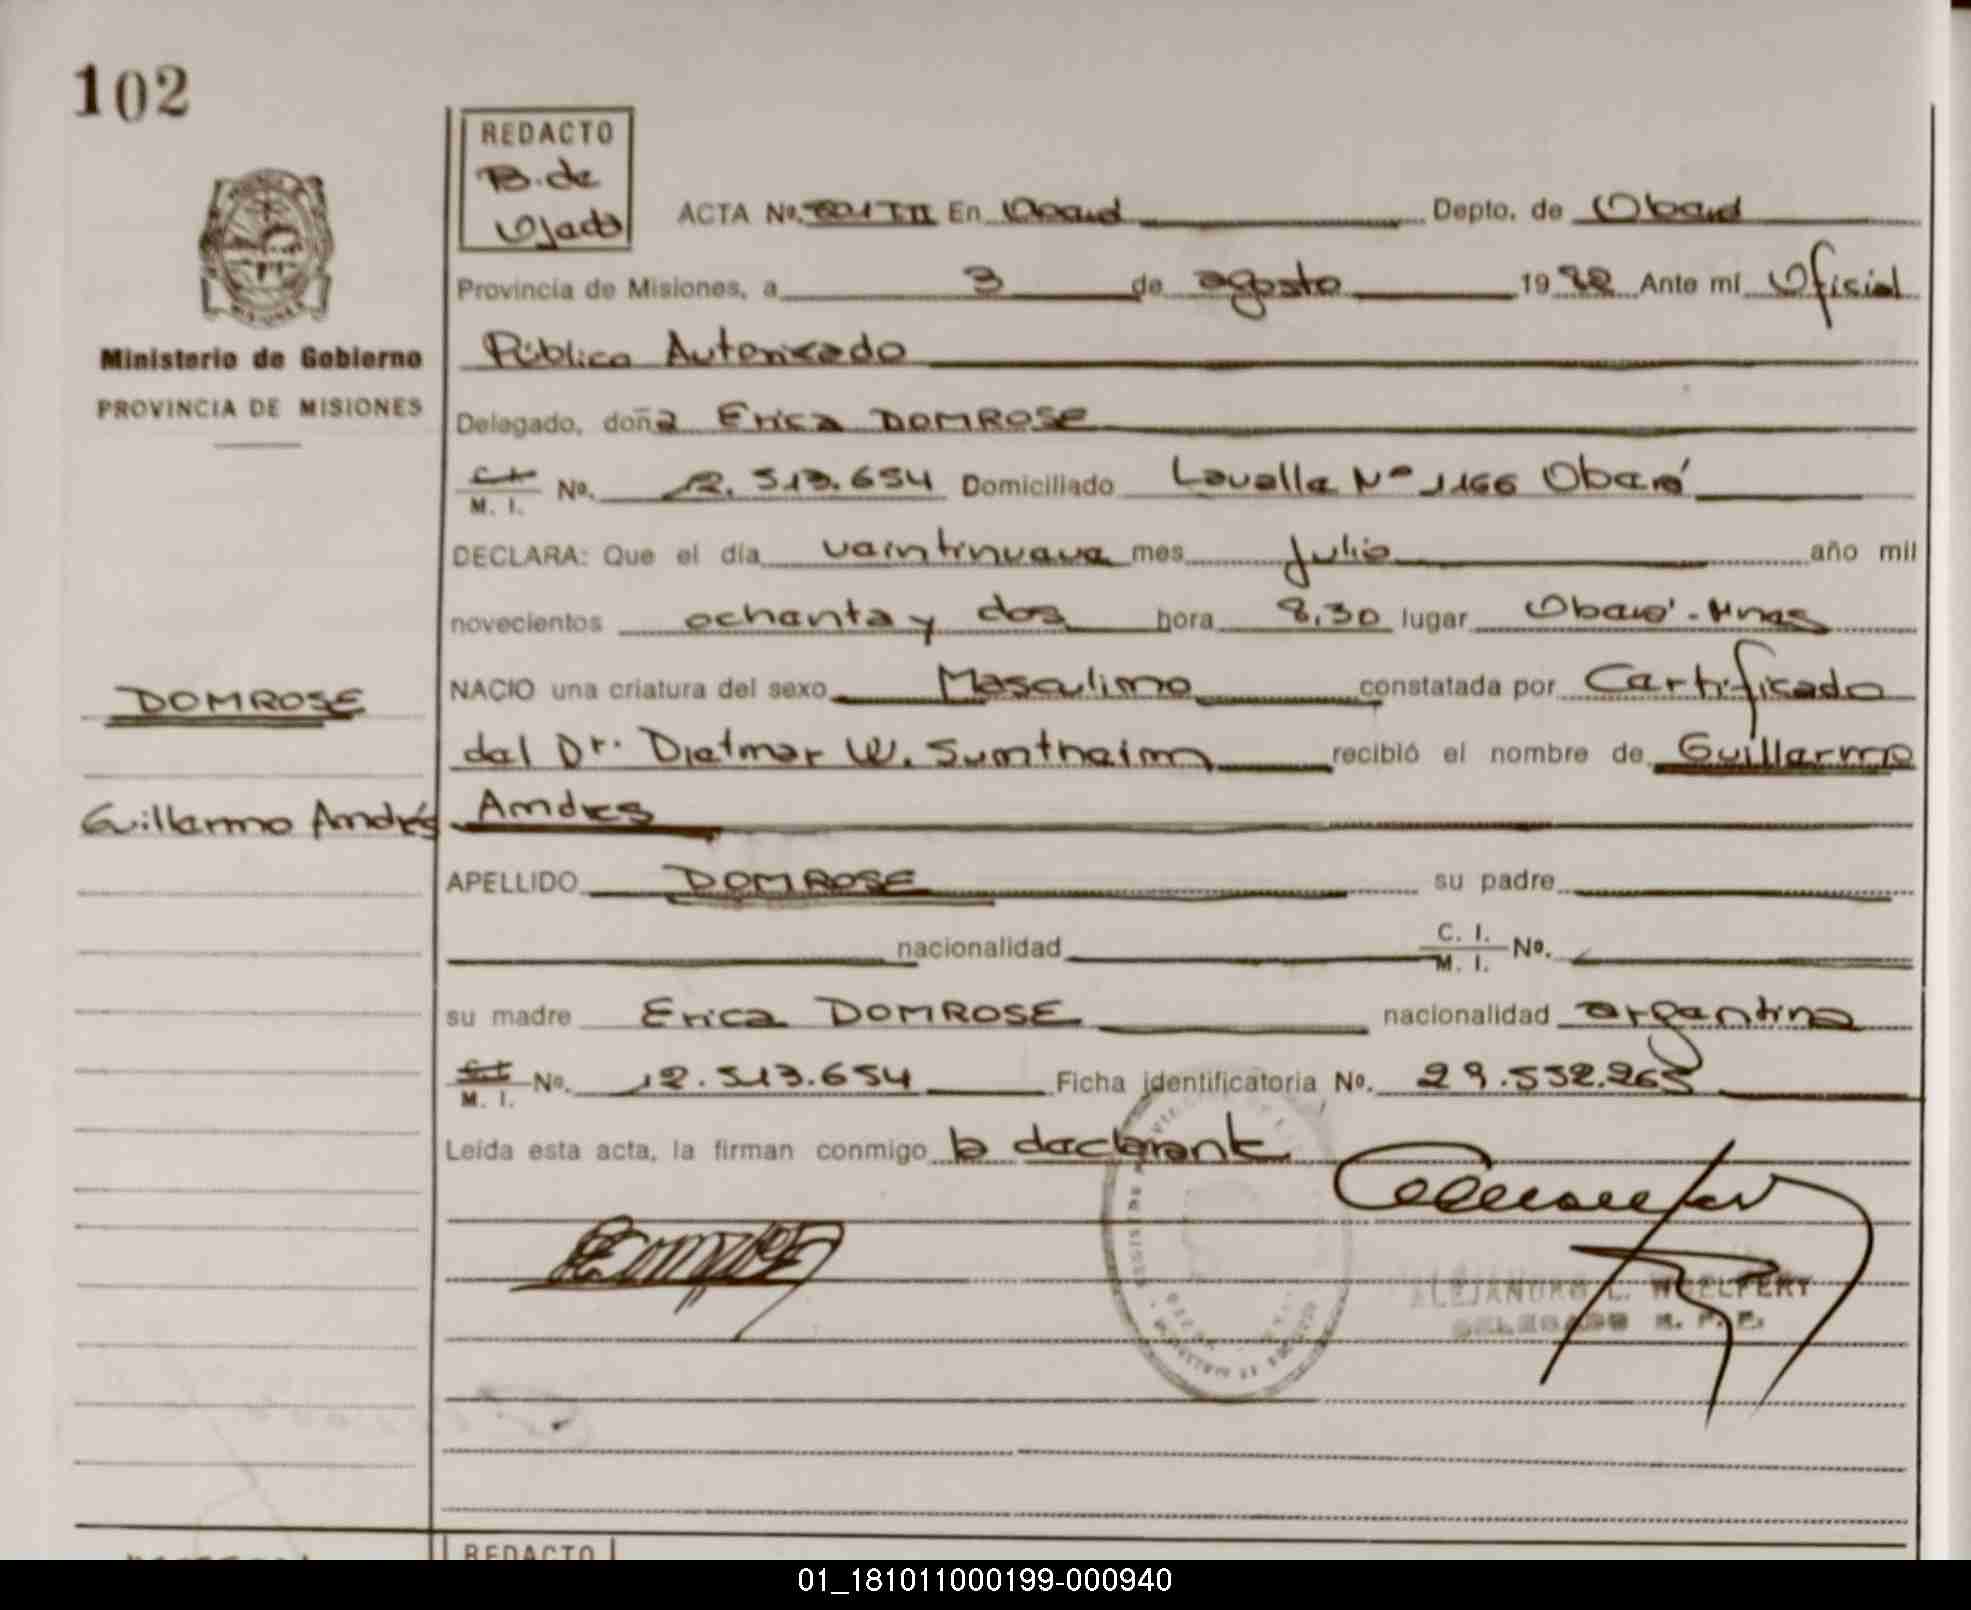 102
REDACTO
B. de
Ojado
ACTA Nº. 801 T II En Oberá Depto. de Oberá
Provincia de Misiones, a 3 de agosto 1982 Ante mí Oficial
Público Autorizado
Ministerio de Gobierno
PROVINCIA DE MISIONES
Delegado, doña Erica DOMROSE
C. I. / M. I. Nº. 12.513.654 Domiciliado Lavalle Nº 1166 Oberá
DECLARA: Que el día veintinueve mes julio año mil
novecientos ochenta y dos hora 8,30 lugar Oberá - Mnes
DOMROSE
NACIO una criatura del sexo Masculino constatada por Certificado
del Dr. Dietmar W. Sumtheim recibió el nombre de Guillermo
Guillermo Andrés
Andres
APELLIDO DOMROSE su padre
nacionalidad C. I. / M. I. Nº.
su madre Erica DOMROSE nacionalidad argentina
C. I. / M. I. Nº. 12.513.654 Ficha identificatoria Nº. 29.552.265
Leída esta acta, la firman conmigo la declarante
ALEJANDRO L. WOELFERT
DELEGADO R. P. P.
REDACTO
01_181011000199-000940